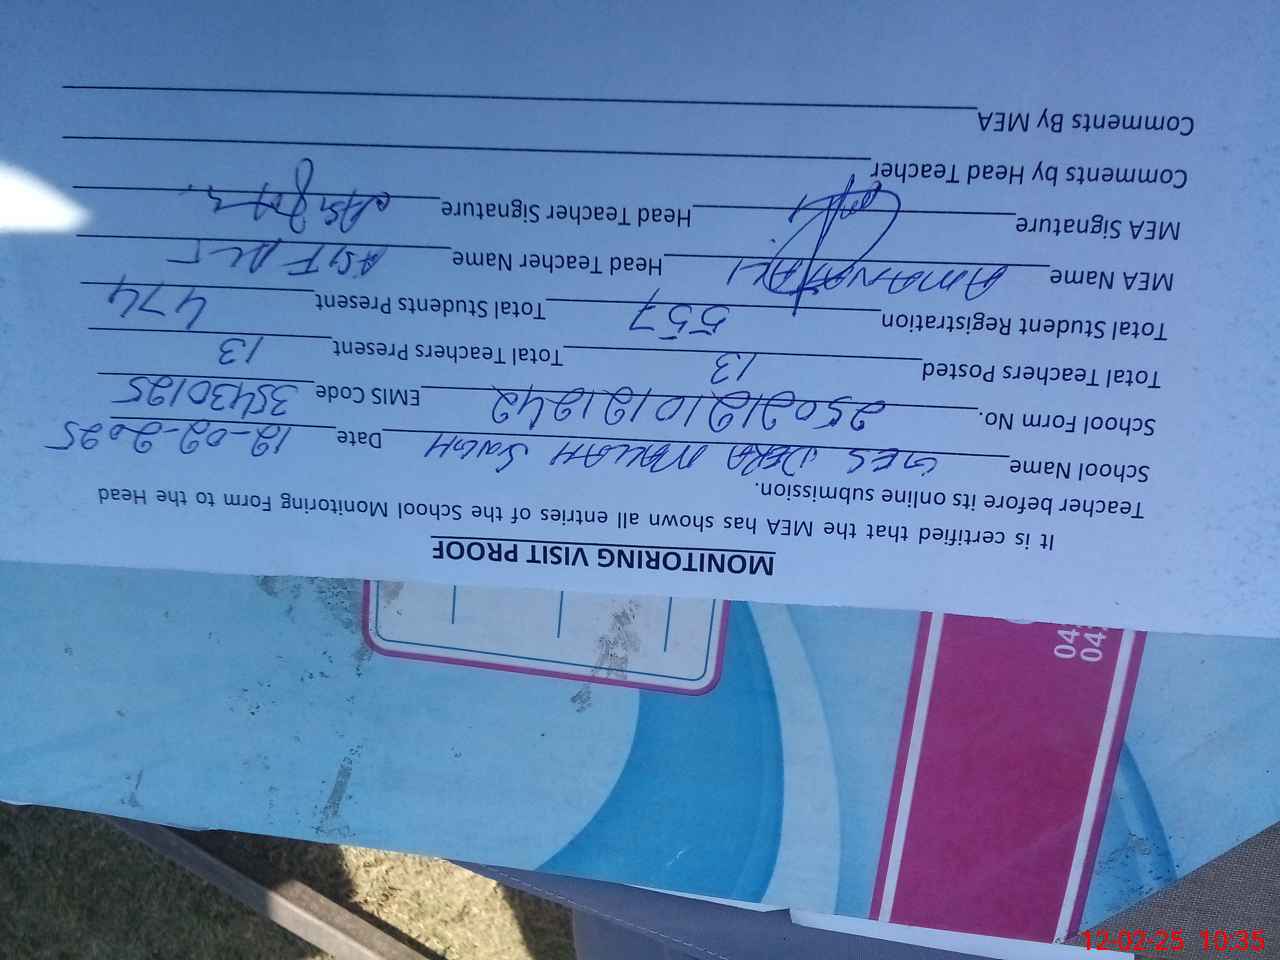 MONITORING VISIT PROOF
It is certified that the MEA has shown all entries of the School Monitoring Form to the Head
Teacher before its online submission.
School Name GES DERA MALLAH SINGH Date 12-02-2025
School Form No. 25021210121242 EMIS Code 35430125
Total Teachers Posted 13 Total Teachers Present 13
Total Student Registration 557 Total Students Present 474
MEA Name AMANAT ALI Head Teacher Name ASIF ALI
MEA Signature Head Teacher Signature
Comments by Head Teacher
Comments By MEA
12-02-25 10:35